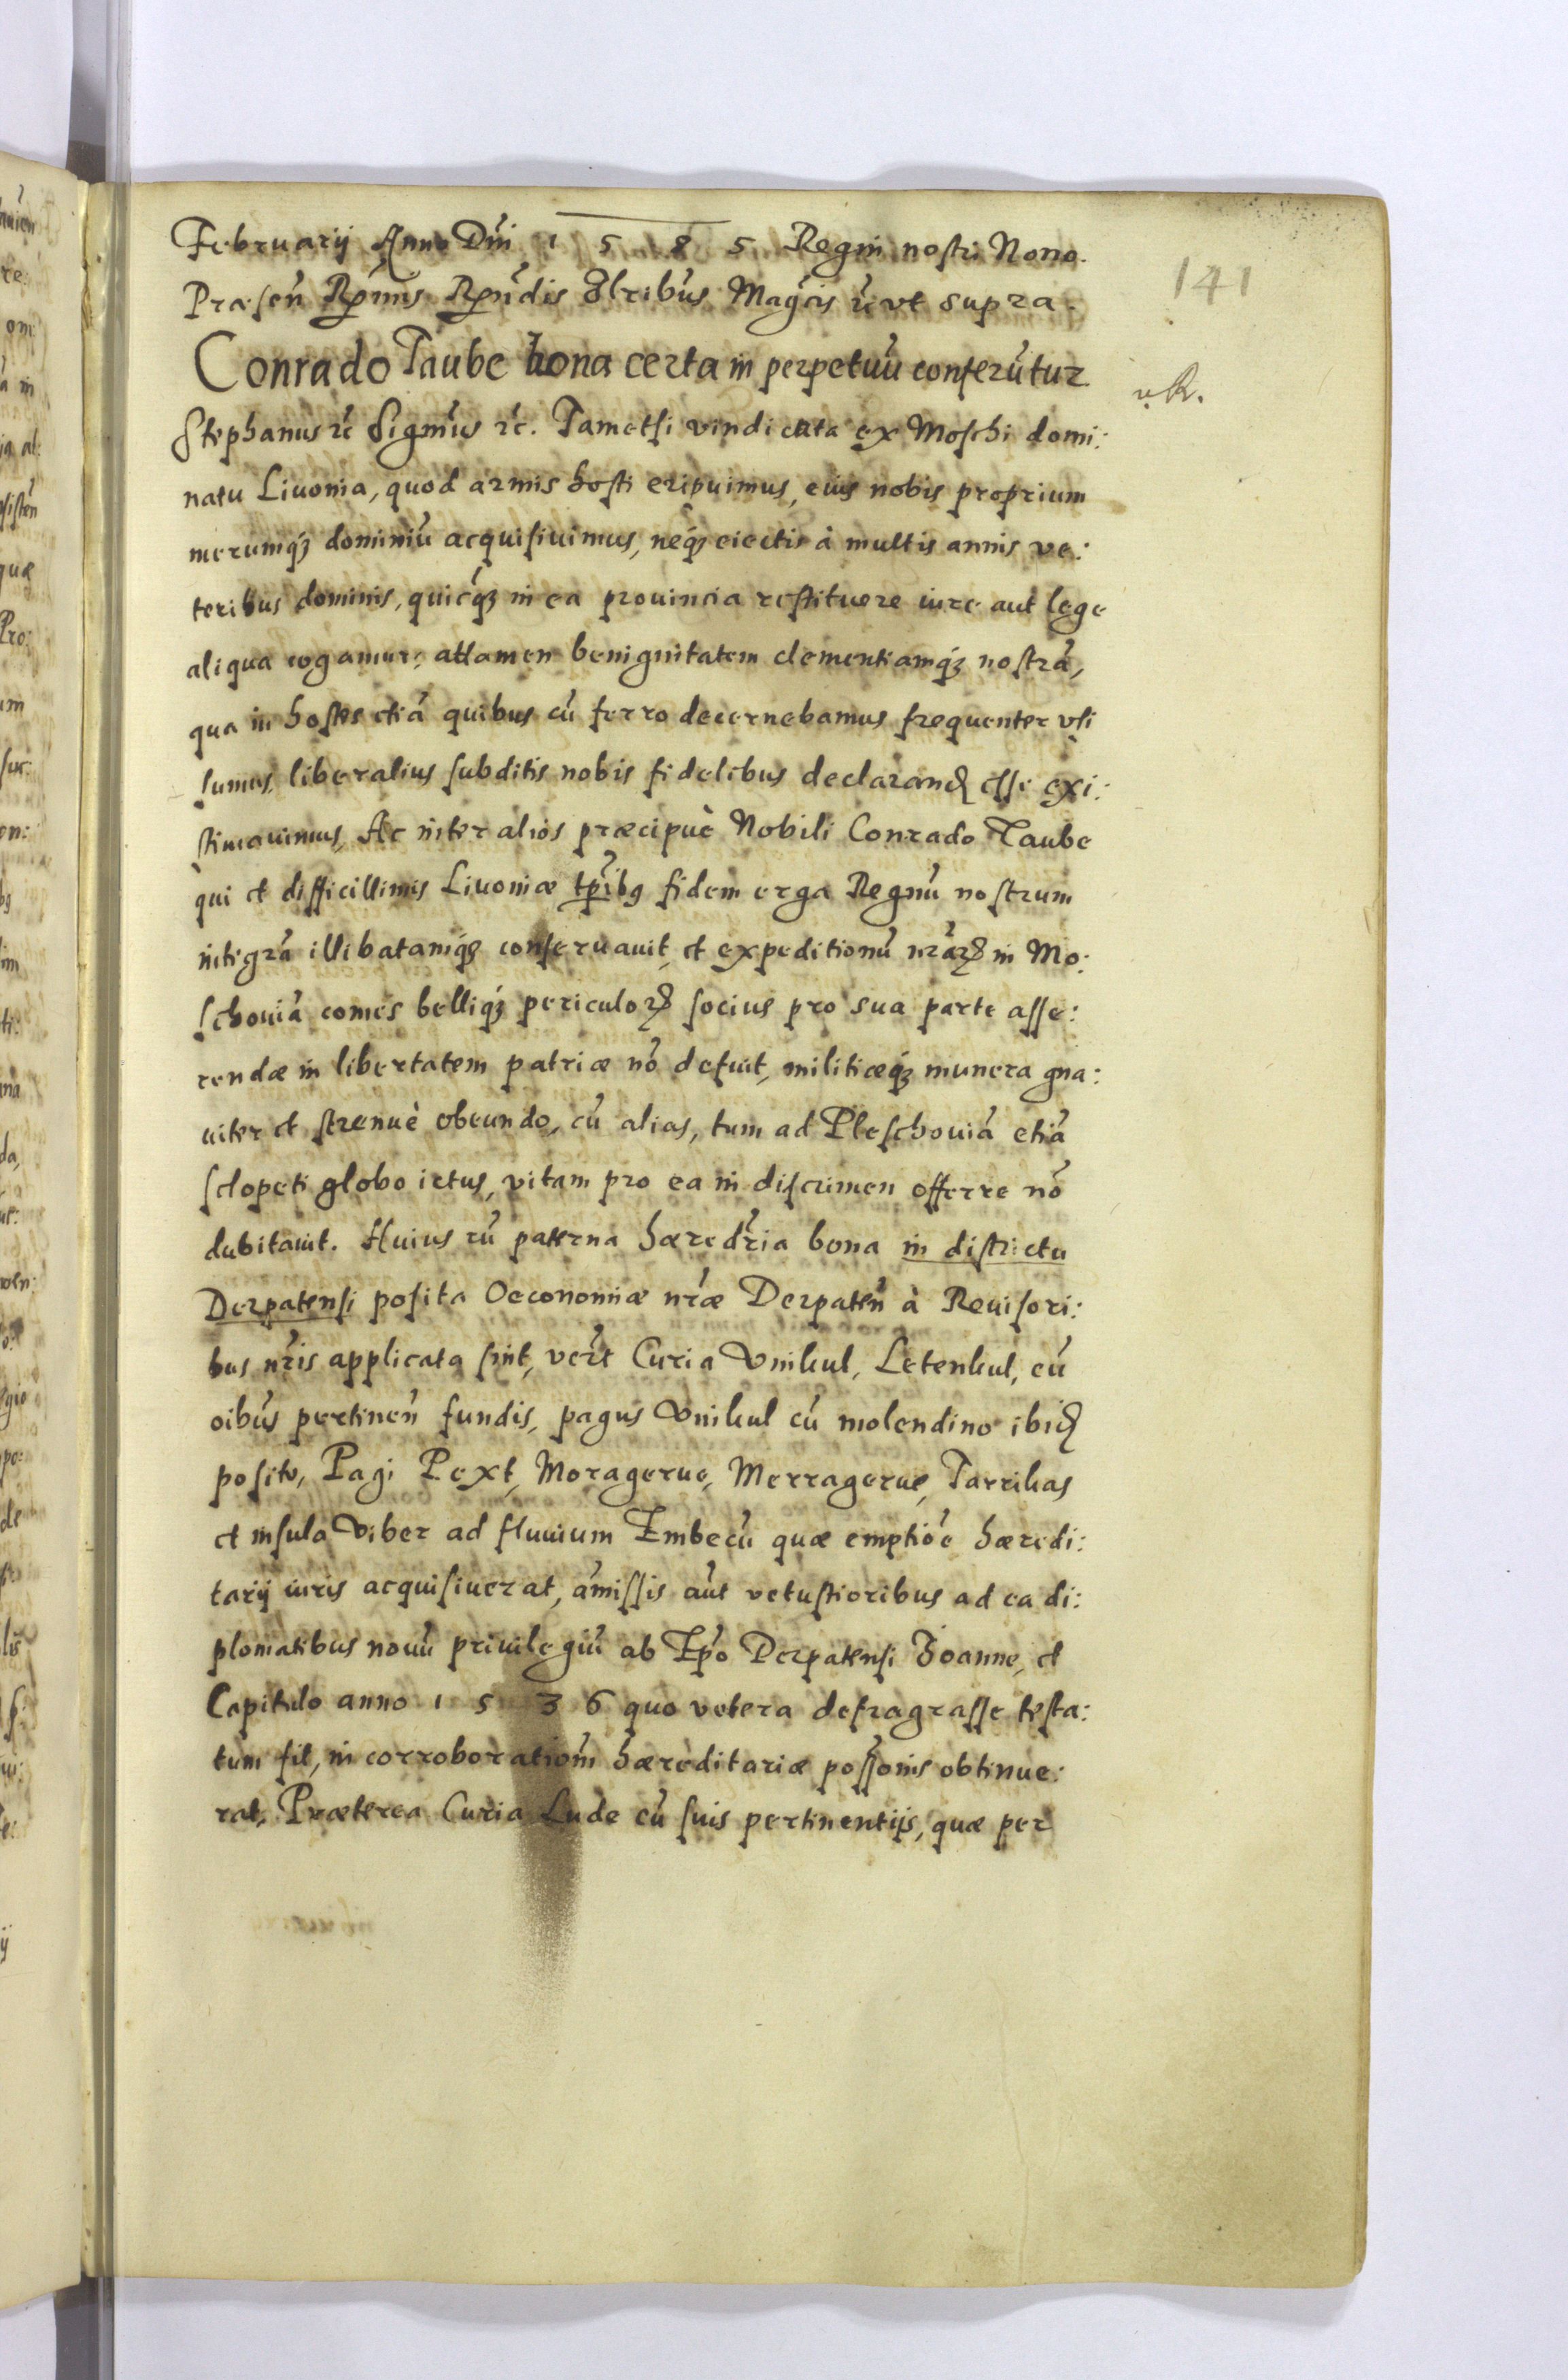 141
Februarij Anno Dni 1 5 8 5 Regni nostri Nono.
Præsen̄ Rm̄is Rndis Illribus Magcis rc vt supra.
Conrado Taube bona certa in perpetuū conferūtur
v. R.
Stephanus rc Signmus rc. Tametsi vindicata ex Moschi domi:
natu Liuonia, quod armis hosti eripuimus, eius nobis proprium
merumq́ꝫ dominiū acquisiuimus, neq́ꝫ eiectis à multis annis ve:
teribus dominis, quicq́ꝫ in ea prouincia restituere iure aut lege
aliqua cogamur, attamen benignitatem clementiamq́ꝫ nostrā,
qua in hostes etiā quibus cū ferro decernebamus frequenter vsi
sumus, liberalius subditis nobis fidelibus declarand esse exi:
stimauimus, Ac inter alios præcipuè Nobili Conrado Taube
qui et difficillimis Liuoniæ tp̄ibꝰ fidem erga Regnū nostrum
integrā illibatamq́ꝫ conseruauit, et expeditionū nrārꝝ in Mo:
schouiā comes belliq́ꝫ periculorꝝ socius pro sua parte asse:
rendæ in libertatem patriæ nō defuit, militiæq́ꝫ munera gna:
uiter et strenuè obeundo, cū alias, tum ad Pleschouiā etiā
sclopeti globo ictus, vitam pro ea in discrimen offerre nō
dubitauit. Huius cū paterna hæredria bona in districtu
Derpatensi posita Oeconomiæ nræ Derpaten̄ à Reuisori:
bus nris applicata sint, vert Curia Vnikul, Letenkul, cū
oibus pertinen̄ fundis, pagus Vnikul cū molendino ibid
posito, Pagi Pext, Moragerue, Merragerue, Tarrikas
et insula Viber ad fluuium Embecū quæ emptiōe hæredi:
tarij iuris acquisiuerat, amissis aūt vetustioribus ad ea di:
plomatibus nouū priuilegiū ab Epo Derpatensi Joanne, et
Capitulo anno 1 5 3 6 quo vetera defragrasse testa:
tum fit, in corroborationm hæreditariæ possonis obtinue:
rat, Præterea Curia Lude cū suis pertinentijs, quæ per